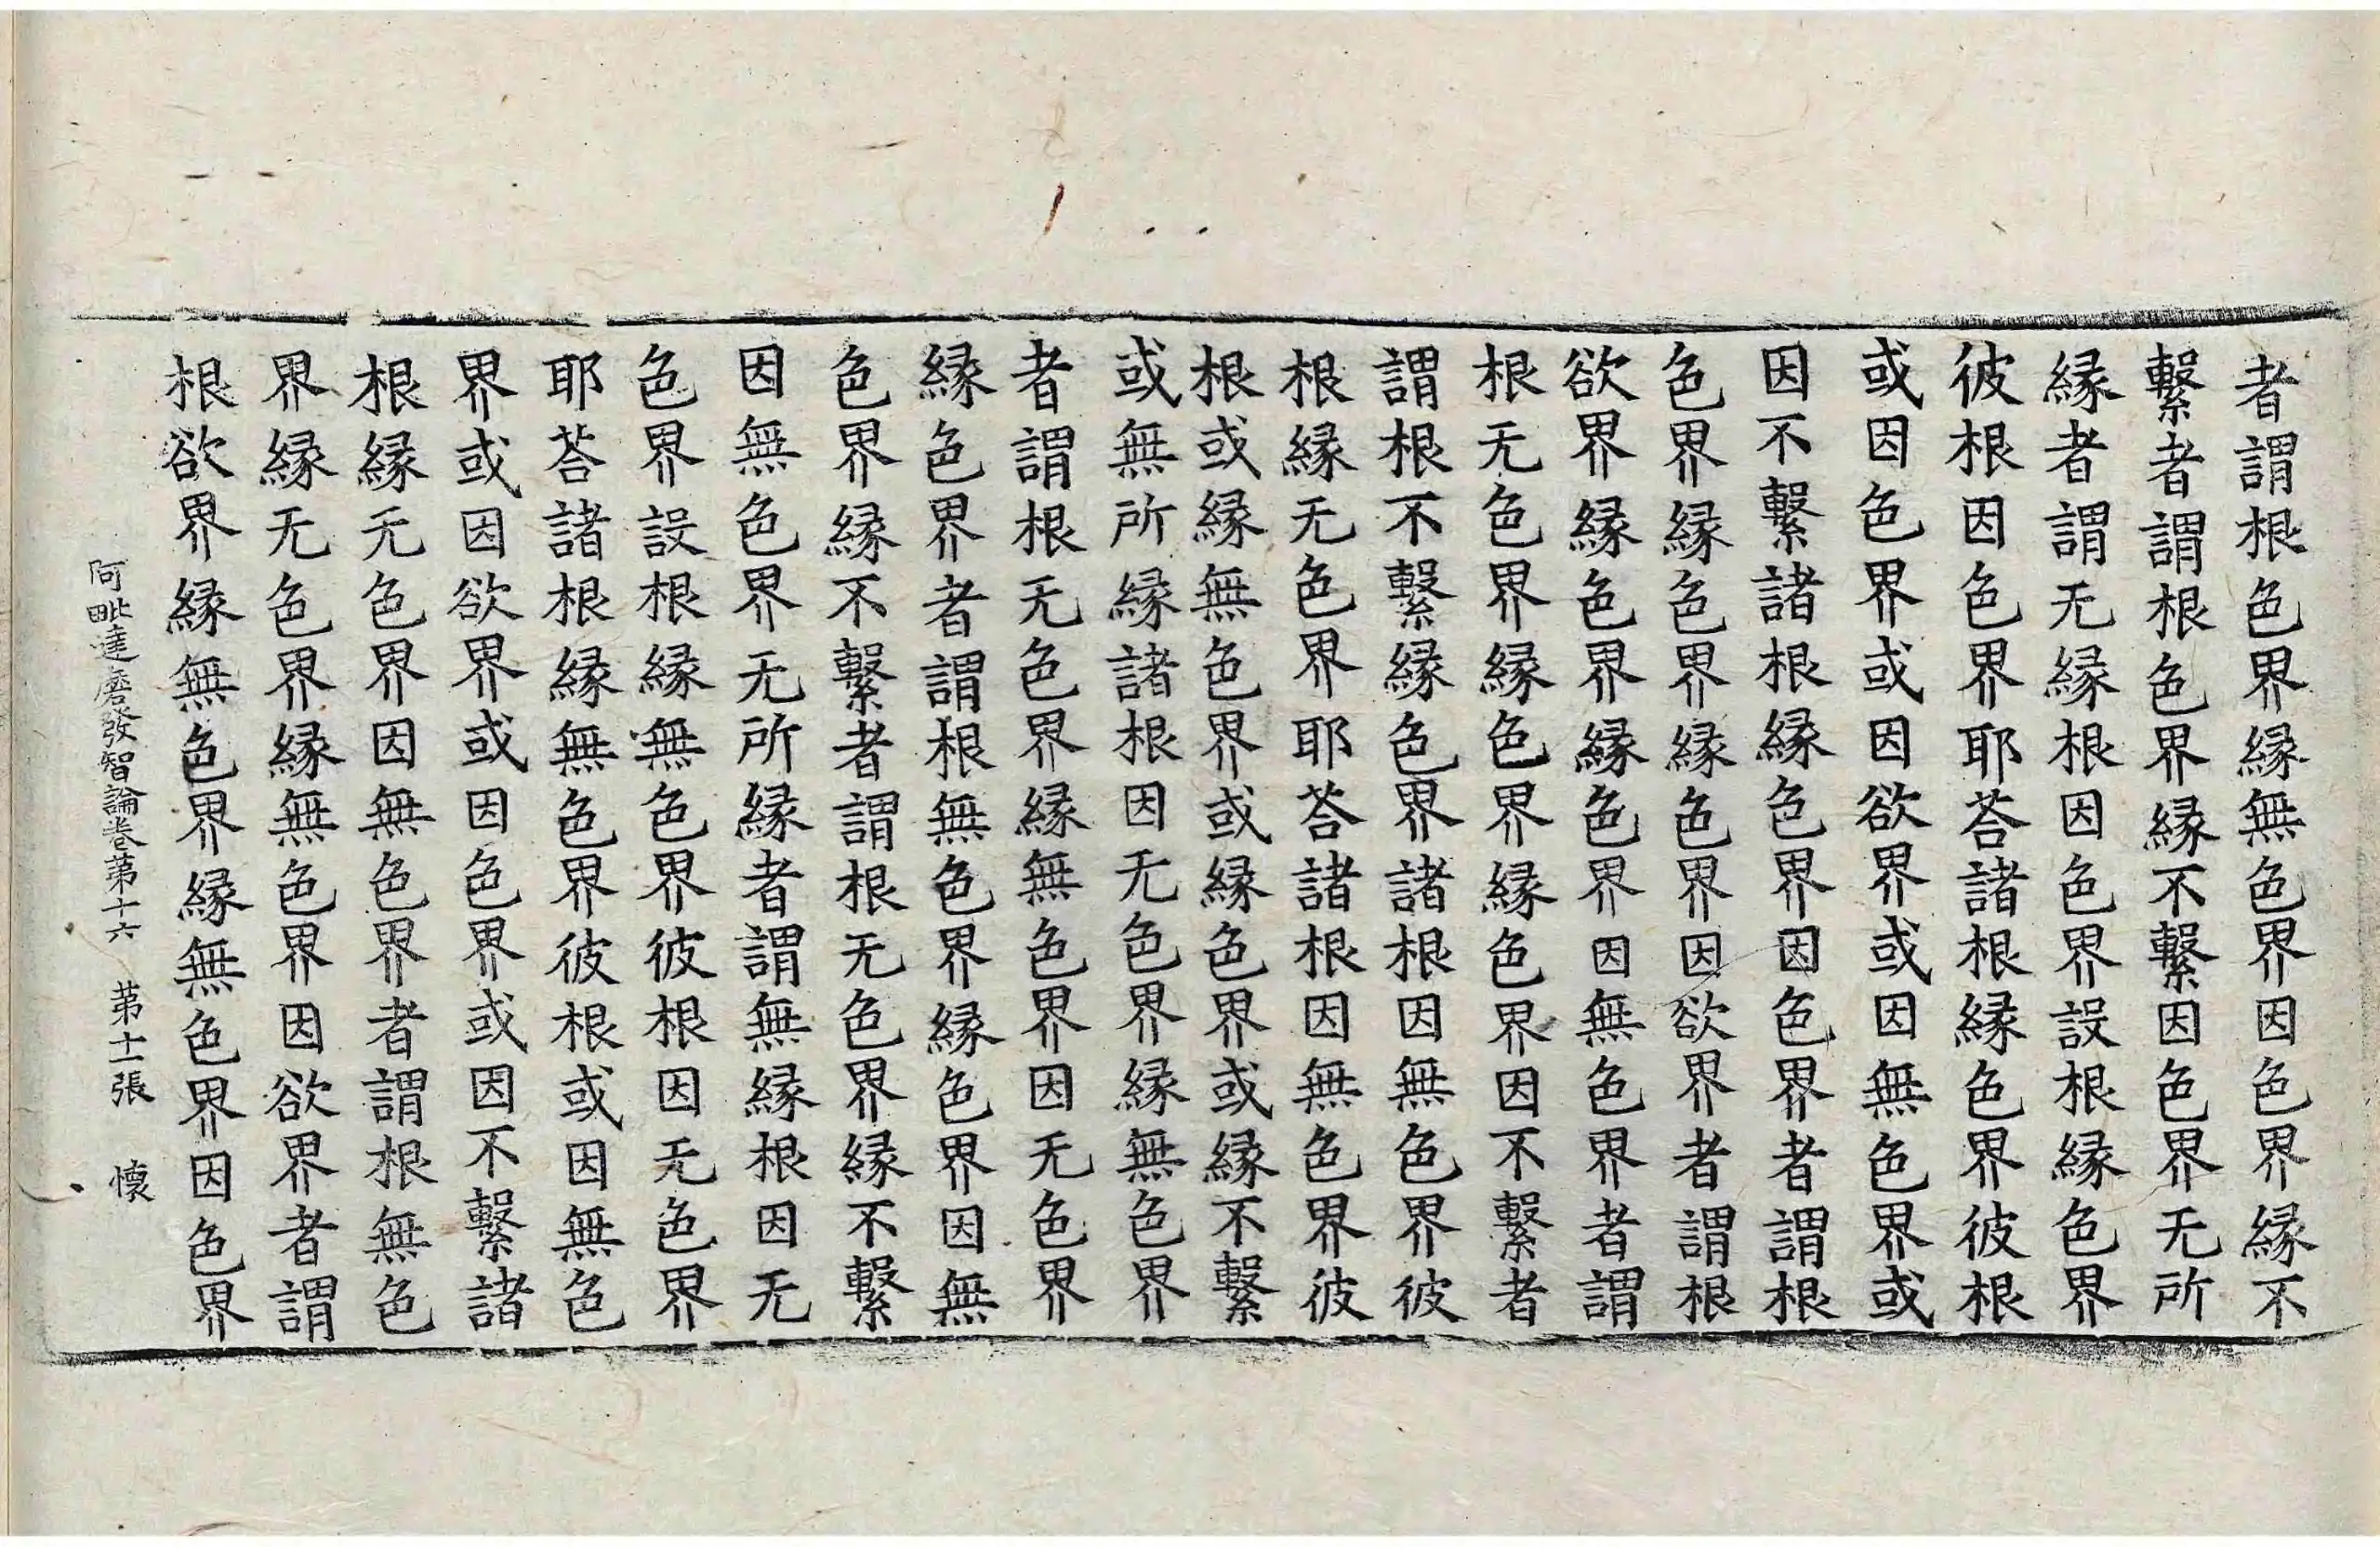 者謂根色界縁無色界因色界縁不
繫者謂根色界縁不繫因色界无所
縁者謂无縁根因色界設根縁色界
彼根因色界耶荅諸根縁色界彼根
或因色界或因欲界或因無色界或
因不繫諸根縁色界因色界者謂根
色界縁色界縁色界因欲界者謂根
欲界縁色界縁色界因無色界者謂
根无色界縁色界縁色界因不繫者
謂根不繫縁色界諸根因無色界彼
根縁无色界耶荅諸根因無色界彼
根或縁無色界或縁色界或縁不繫
或無所縁諸根因无色界縁無色界
者謂根无色界縁無色界因无色界
縁色界者謂根無色界縁色界因無
色界縁不繫者謂根无色界縁不繫
因無色界无所縁者謂無縁根因无
色界設根縁無色界彼根因无色界
耶荅諸根縁無色界彼根或因無色
界或因欲界或因色界或因不繫諸
根縁无色界因無色界者謂根無色
界縁无色界縁無色界因欲界者謂
根欲界縁無色界縁無色界因色界
阿毗達磨發智論卷第十六 第十一張 懷